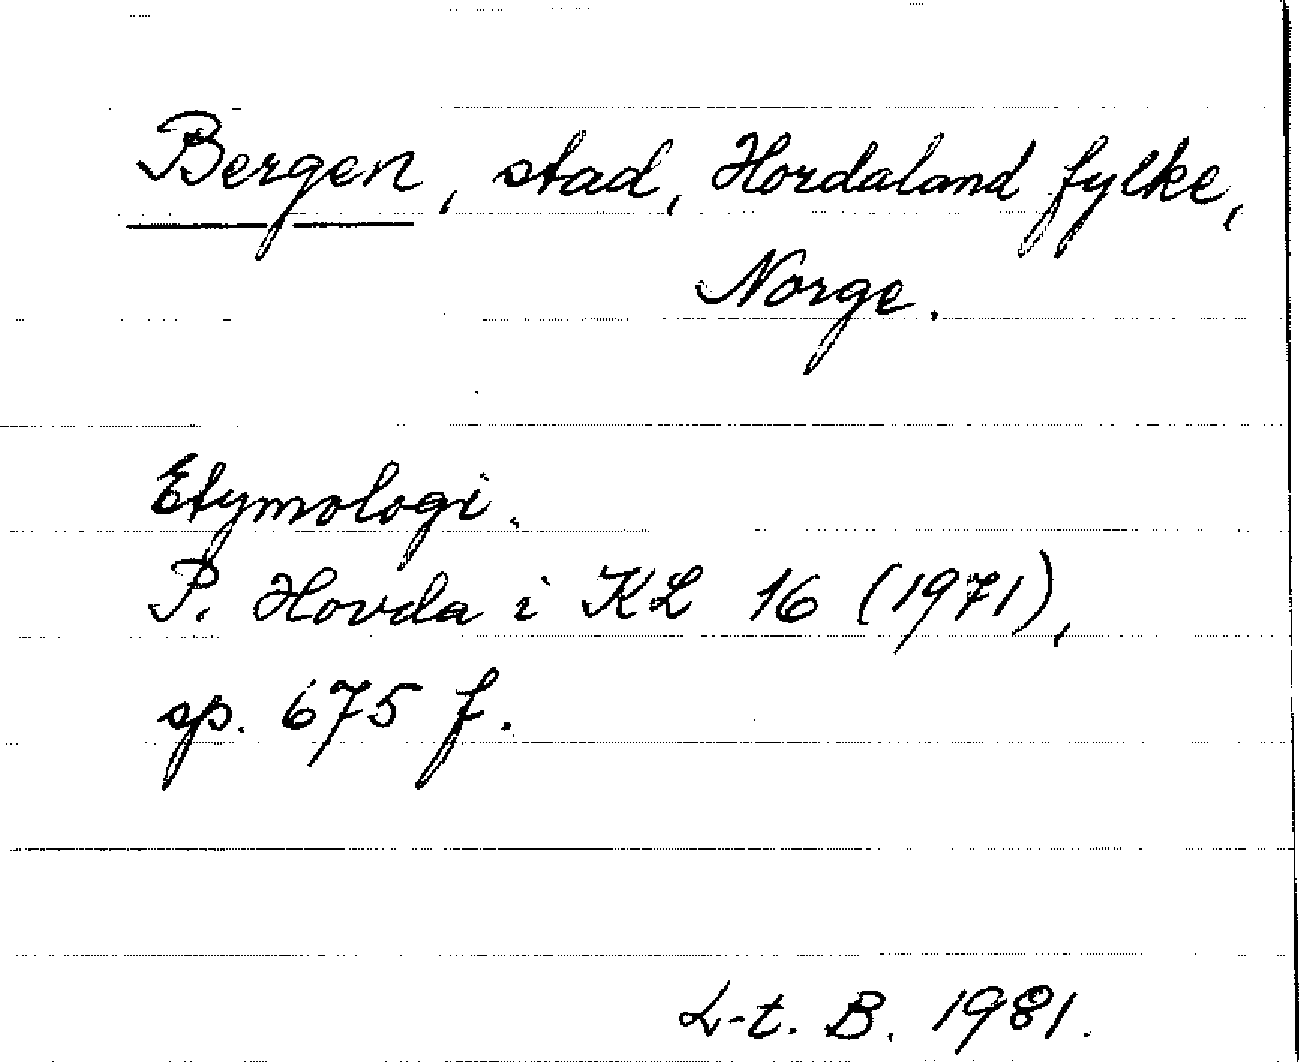 Bergen, stad, Hordaland fylke,
Norge.
Etymologi.
P. Hovda i KL 16 (1971),
sp. 675 f.
L-t. B. 1981.